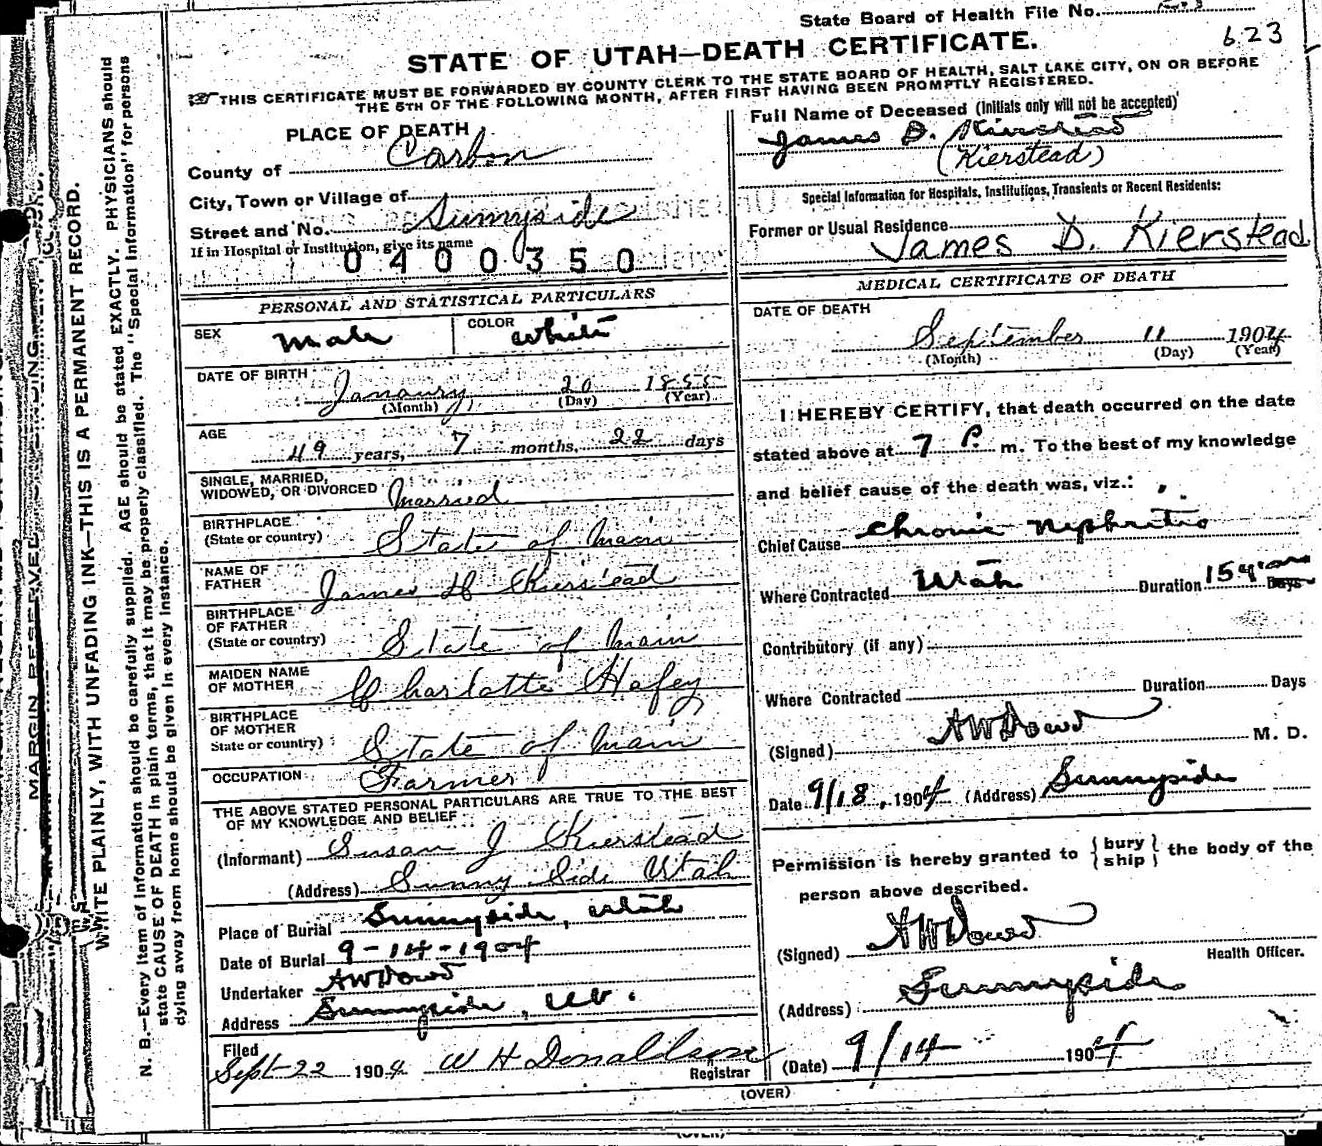 State Board of Health File No.
623
STATE OF UTAH—DEATH CERTIFICATE.
THIS CERTIFICATE MUST BE FORWARDED BY COUNTY CLERK TO THE STATE BOARD OF HEALTH, SALT LAKE CITY, ON OR BEFORE
THE 5TH OF THE FOLLOWING MONTH, AFTER FIRST HAVING BEEN PROMPTLY REGISTERED.
PLACE OF DEATH
County of Carbon
City, Town or Village of
Street and No. Sunnyside
If in Hospital or Institution, give its name
0400350
PERSONAL AND STATISTICAL PARTICULARS
SEX Male COLOR White
DATE OF BIRTH Janaury 20 1855
(Month) (Day) (Year)
AGE 49 years, 7 months, 22 days
SINGLE, MARRIED,
WIDOWED, OR DIVORCED Married
BIRTHPLACE
(State or country) State of Main
NAME OF
FATHER James H Kierstead
BIRTHPLACE
OF FATHER
(State or country) State of Main
MAIDEN NAME
OF MOTHER Charlotte Hafey
BIRTHPLACE
OF MOTHER
State or country) State of Main
OCCUPATION Farmer
THE ABOVE STATED PERSONAL PARTICULARS ARE TRUE TO THE BEST
OF MY KNOWLEDGE AND BELIEF
(Informant) Susan J Kierstead
(Address) Sunny Side Utah
Place of Burial Sunnyside, Utah
Date of Burial 9-14-1904
Undertaker AW Dowd
Address Sunnyside, Ut.
Filed
Sept 22 1904 W H Donaldson
Registrar
Full Name of Deceased (Initials only will not be accepted)
James D. Kierstead
(Kierstead)
Special Information for Hospitals, Institutions, Transients or Recent Residents:
Former or Usual Residence
James D. Kierstead
MEDICAL CERTIFICATE OF DEATH
DATE OF DEATH
September 11 1904
(Month) (Day) (Year)
I HEREBY CERTIFY, that death occurred on the date
stated above at 7 P. m. To the best of my knowledge
and belief cause of the death was, viz.:
Chief Cause Chronic Nephritis
Where Contracted Utah Duration 15 years Days
Contributory (if any)
Where Contracted Duration Days
(Signed) AW Dowd M. D.
Date 9/18, 1904 (Address) Sunnyside
Permission is hereby granted to {bury
ship} the body of the
person above described.
(Signed) AW Dowd
Health Officer.
(Address) Sunnyside
(Date) 9/14 1904
(OVER)
MARGIN RESERVED FOR BINDING
WRITE PLAINLY, WITH UNFADING INK—THIS IS A PERMANENT RECORD.
N. B.—Every item of information should be carefully supplied. AGE should be stated EXACTLY. PHYSICIANS should
state CAUSE OF DEATH in plain terms, that it may be properly classified. The "Special Information" for persons
dying away from home should be given in every instance.